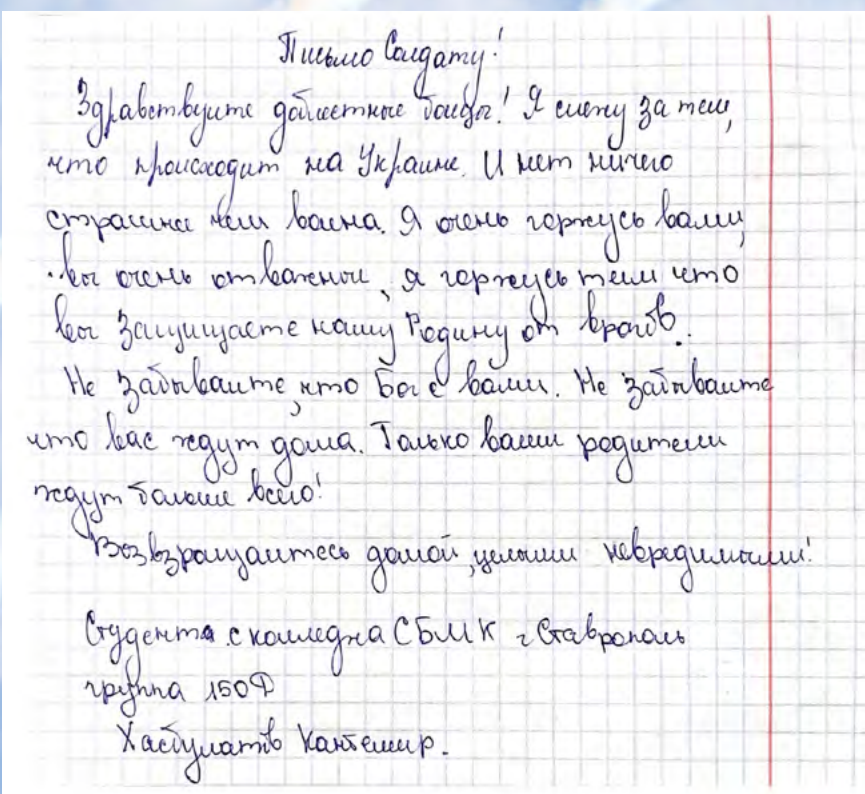 Письмо Солдату!
Здравствуите доблестные бойцы! Я слежу за тем,
что происходит на Украине. И нет ничего
страшне чем воина. Я очень горжусь вами,
вы очень отважныи, я горжусь тем что
вы защищаете нашу Родину от врагов.
Не забываите, что Бог с вами. Не забываите
что вас ждут дома. Только ваши родители
ждут больше всего!
Возвзращаитесь домой, целыми невредимыми!
Студента с колледжа СБМК г Ставрополь
группа 150Ф
Хасбулатов Кантемир.